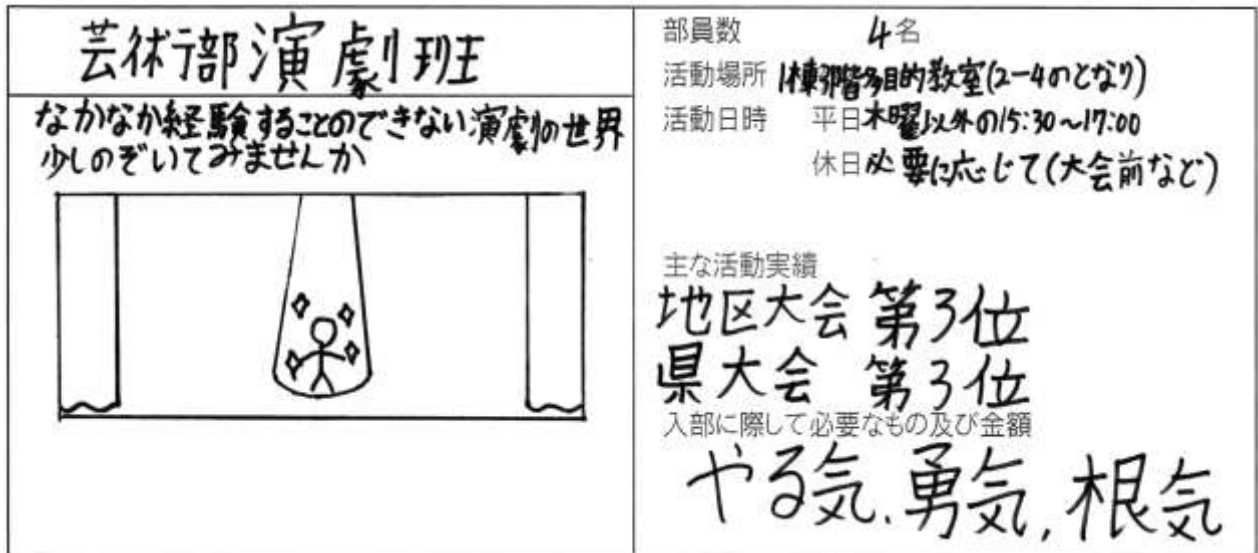 芸術部演劇班
なかなか経験することのできない演劇の世界
少しのぞいてみませんか
部員数 4名
活動場所 1棟3階多目的教室(2-4のとなり)
活動日時 平日木曜以外の15:30~17:00
休日必要に応じて(大会前など)
主な活動実績
地区大会 第3位
県大会 第3位
入部に際して必要なもの及び金額
やる気、勇気、根気